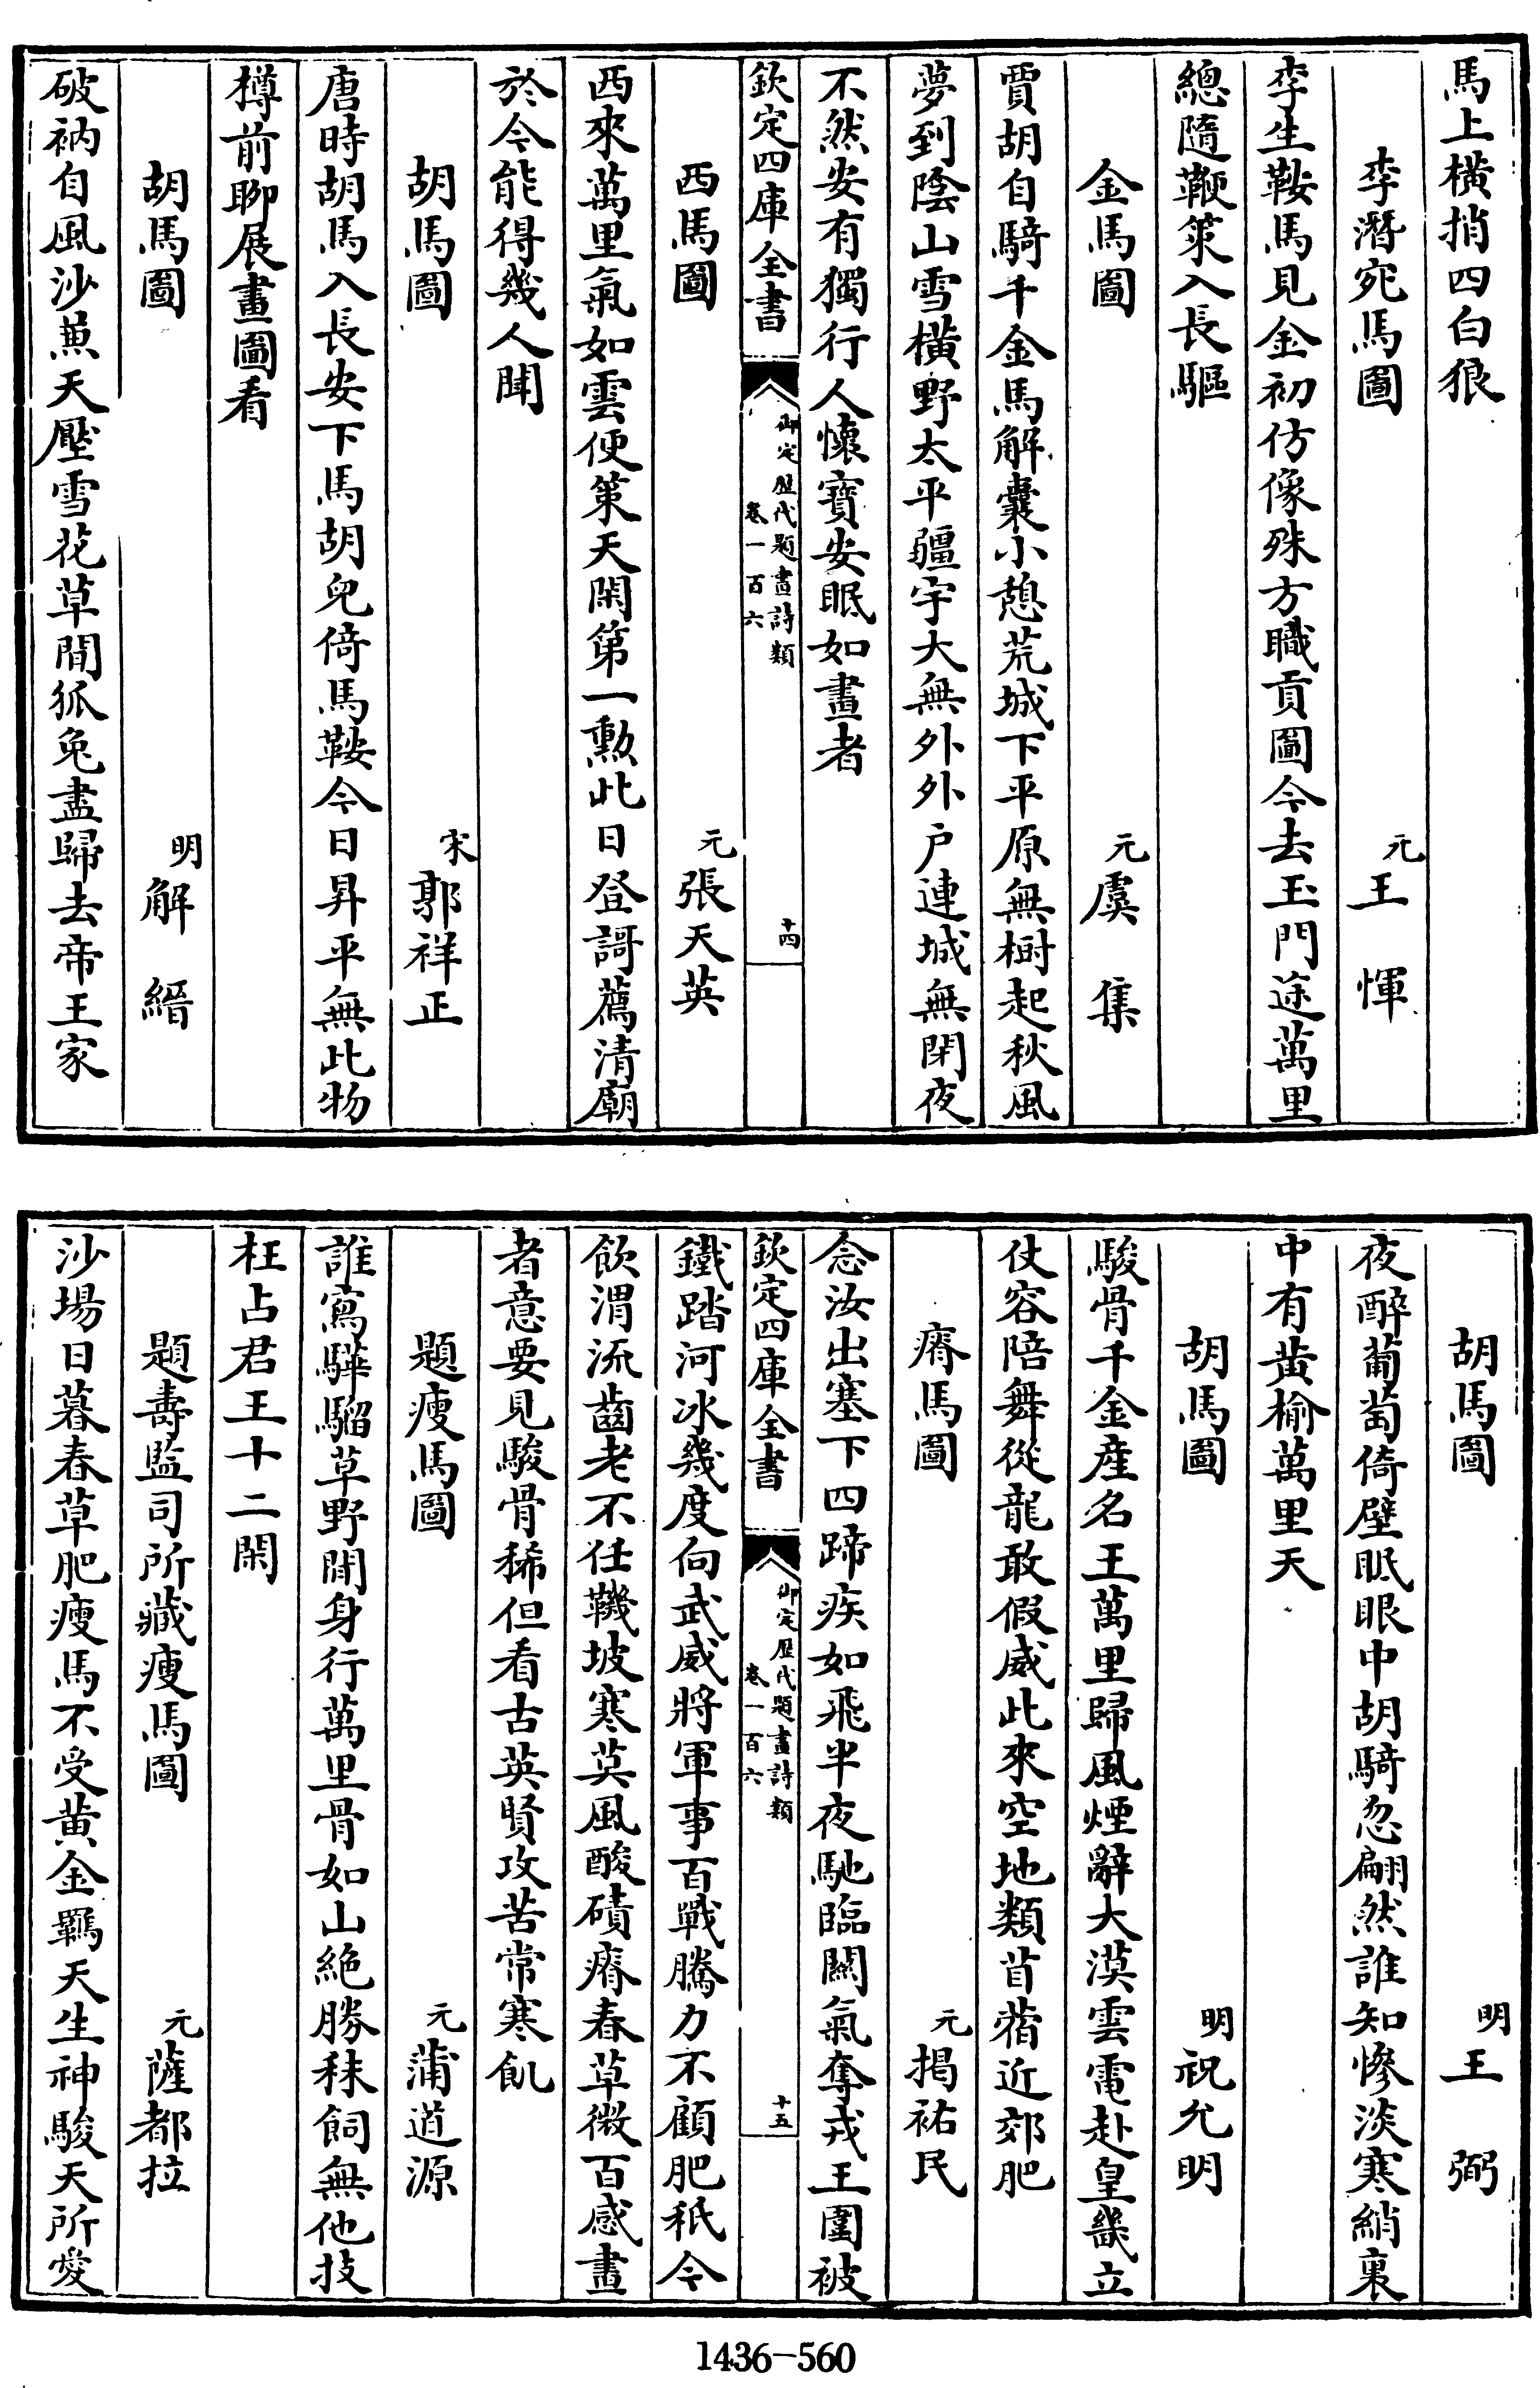 馬上橫捎四白狼
李濳宛馬圖 元王惲
李生鞍馬見金初仿像殊方職貢圖今去玉門途萬里
總隨鞭策入長驅
金馬圖 元虞集
賈胡自騎千金馬解囊小憩荒城下平原無樹起秋風
夢到陰山雪橫野太平疆宇大無外外户連城無閉夜
不然安有獨行人懷寶安眠如畫者
欽定四庫全書 御定歷代題畫詩類 卷一百六 十四
西馬圖 元張天英
西來萬里氣如雲便策天閑第一勲此日登謌薦清廟
於今能得幾人聞
胡馬圖 宋郭祥正
唐時胡馬入長安下馬胡兒倚馬鞍今日昇平無此物
樽前聊展畫圖看
胡馬圖 明解縉
破衲自風沙蕉天壓雪花草間狐兔盡歸去帝王家
胡馬圖 明王弼
夜醉葡萄倚壁眠眼中胡騎忽翩然誰知慘淡寒綃裏
中有黄榆萬里天
胡馬圖 明祝允明
駿骨千金産名王萬里歸風煙辭大漠雲電赴皇畿立
仗容陪舞從龍敢假威此來空地類苜蓿近郊肥
瘠馬圖 元揭祐民
念汝出塞下四蹄疾如飛半夜馳臨關氣奪戎王圍被
欽定四庫全書 御定歷代題畫詩類 卷一百六 十五
鐵踏河冰幾度向武威將軍事百戰騰力不顧肥秖今
飲渭流齒老不任鞿坡寒莫風酸磧瘠春草微百感畫
者意要見駿骨稀但看古英賢攻苦常寒飢
題瘦馬圖 元蒲道源
誰寫驊騮草野閒身行萬里骨如山絶勝秣飼無他技
枉占君王十二閑
題壽監司所藏瘦馬圖 元薩都拉
沙場日暮春草肥瘦馬不受黄金羈天生神駿天所愛
1436-560